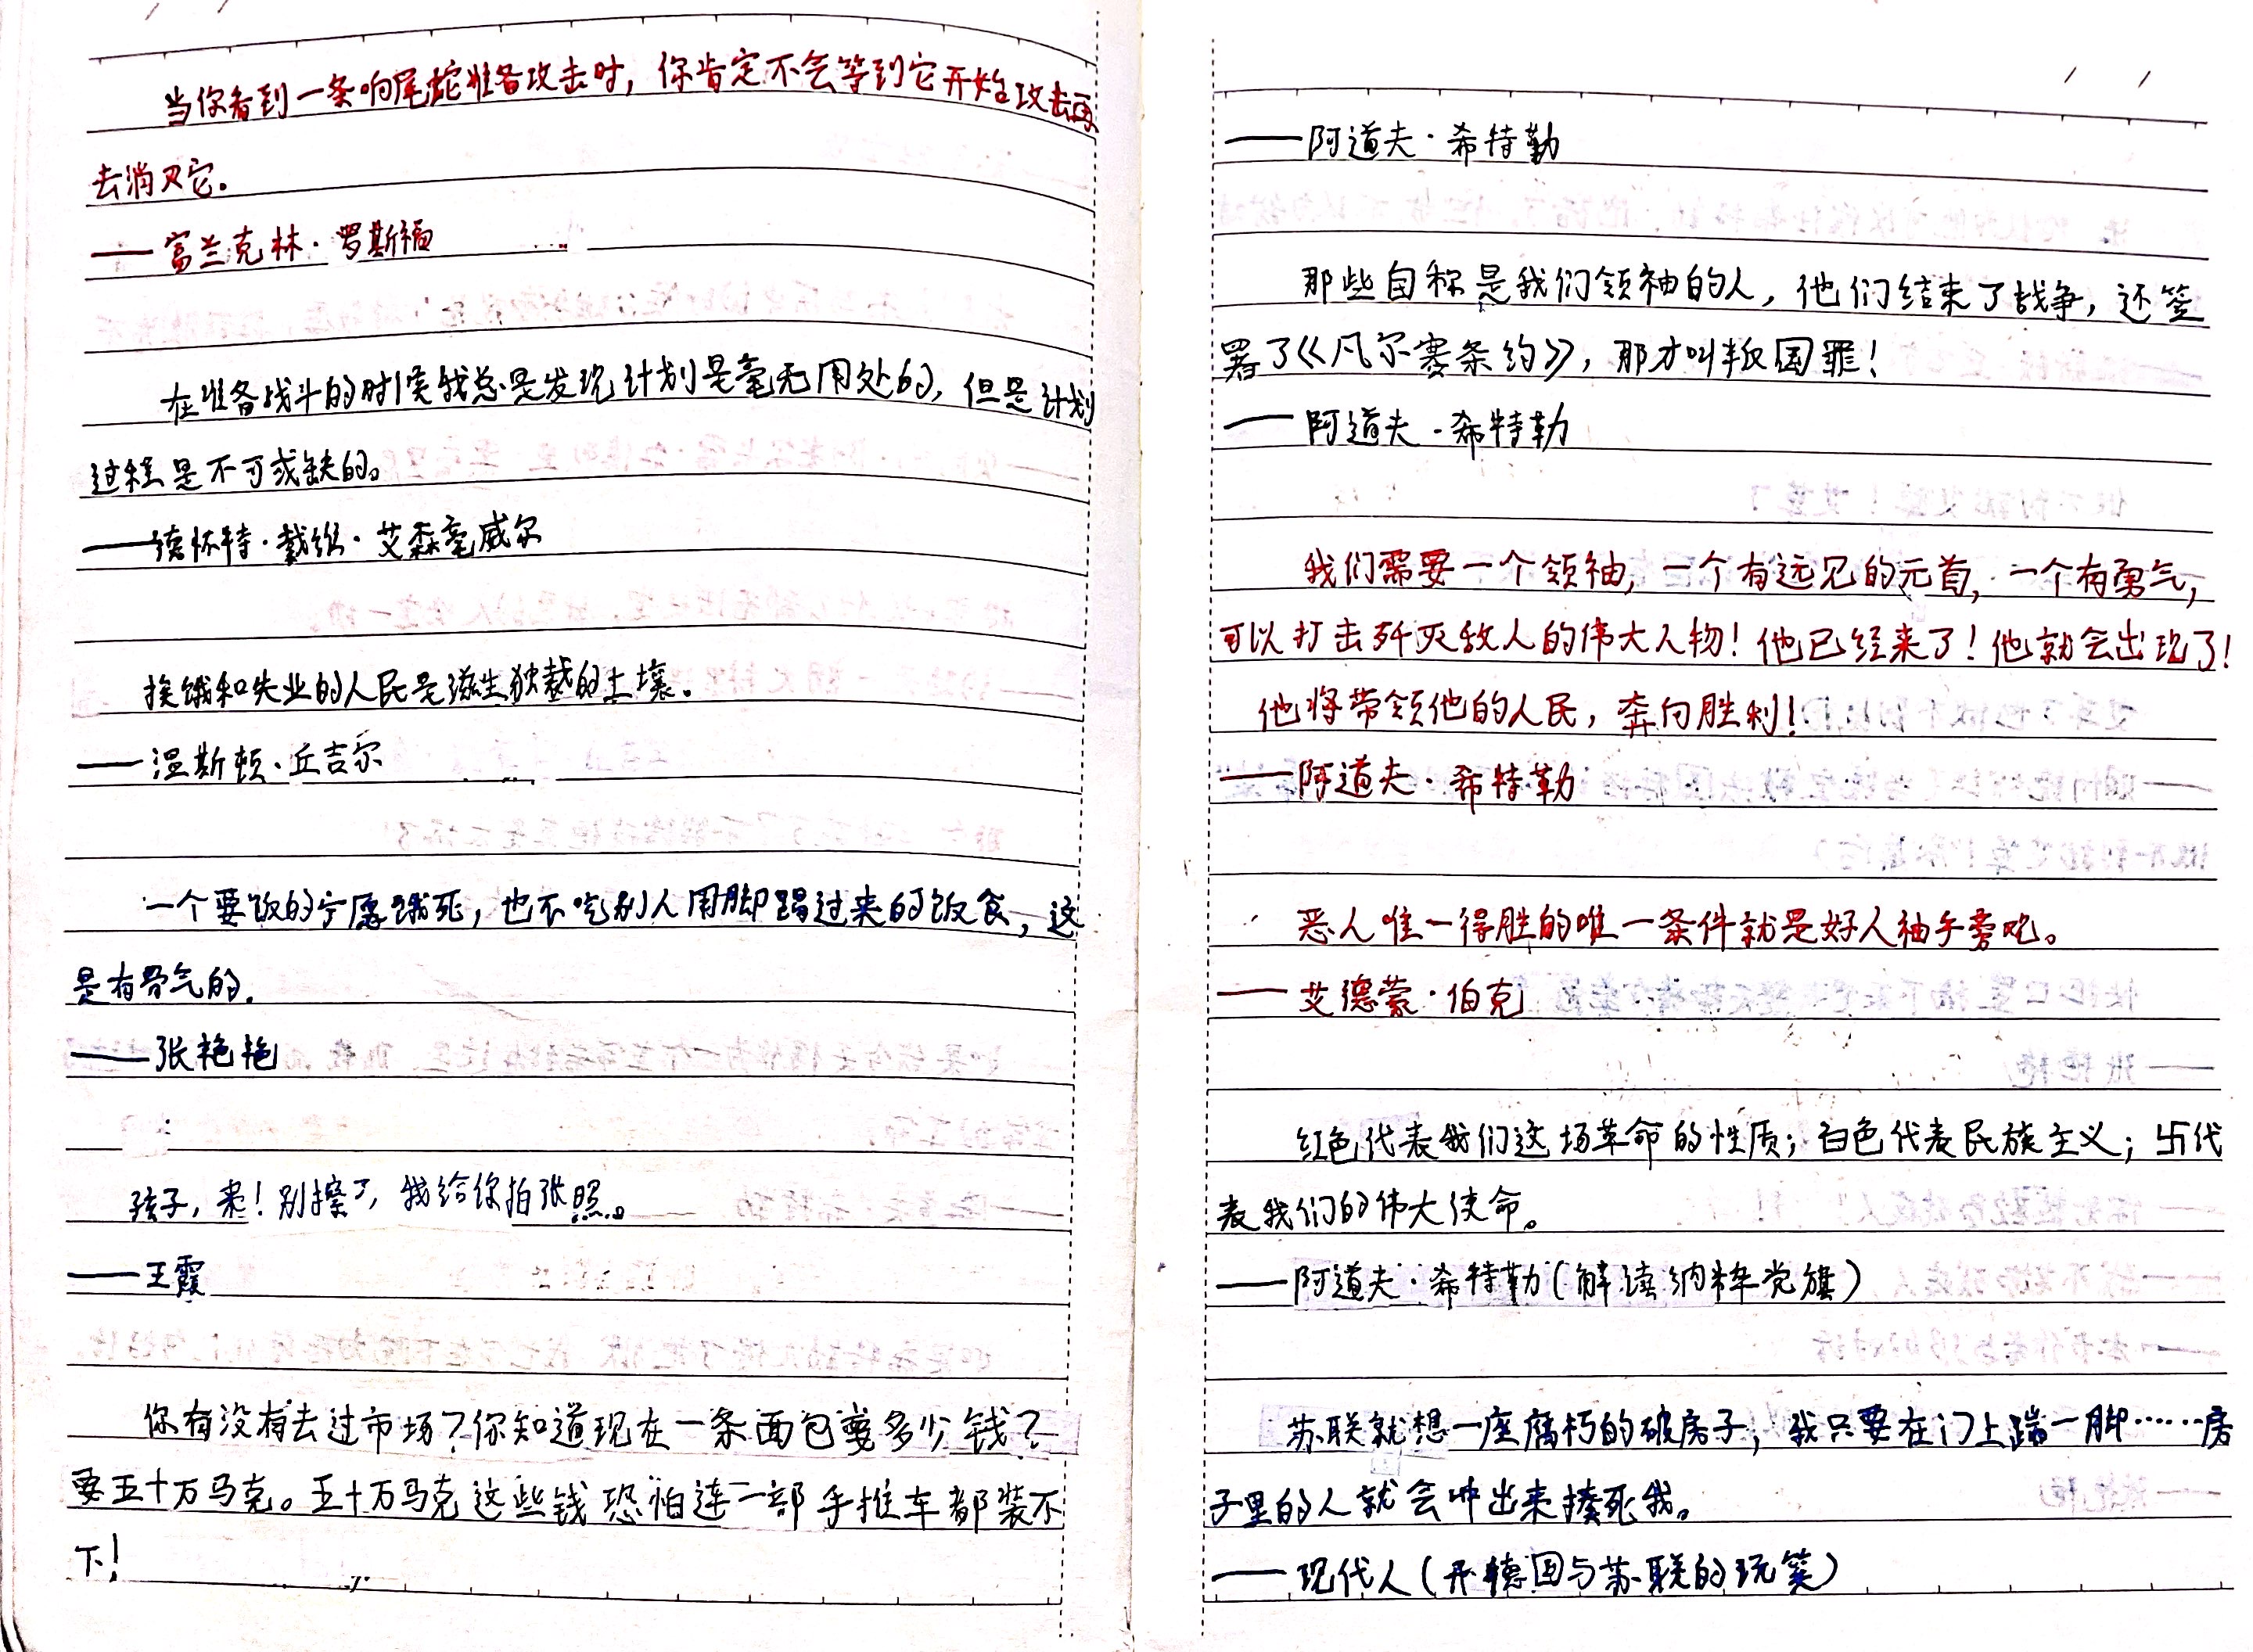 当你看到一条响尾蛇准备攻击时，你肯定不会等到它开始攻击再
去消灭它。
——富兰克林·罗斯福
在准备战斗的时候我总是发现计划是毫无用处的，但是计划
过程是不可或缺的。
——德怀特·戴维·艾森豪威尔
挨饿和失业的人民是滋生独裁的土壤。
——温斯顿·丘吉尔
一个要饭的宁愿饿死，也不吃别人用脚踢过来的饭食，这
是有骨气的。
——张艳艳
孩子，来！别擦了，我给你拍张照。
——王霞
你有没有去过市场？你知道现在一条面包要多少钱？
要五十万马克。五十万马克这些钱恐怕连一部手推车都装不
下！
——阿道夫·希特勒
那些自称是我们领袖的人，他们结束了战争，还签
署了《凡尔赛条约》，那才叫叛国罪！
——阿道夫·希特勒
我们需要一个领袖，一个有远见的元首，一个有勇气，
可以打击歼灭敌人的伟大人物！他已经来了！他就会出现了！
他将带领他的人民，奔向胜利！
——阿道夫·希特勒
恶人唯一得胜的唯一条件就是好人袖手旁观。
——艾德蒙·伯克
红色代表我们这场革命的性质；白色代表民族主义；卐代
表我们的伟大使命。
——阿道夫·希特勒（解读纳粹党旗）
苏联就想一座腐朽的破房子，我只要在门上踹一脚……房
子里的人就会冲出来揍死我。
——现代人（开德国与苏联的玩笑）